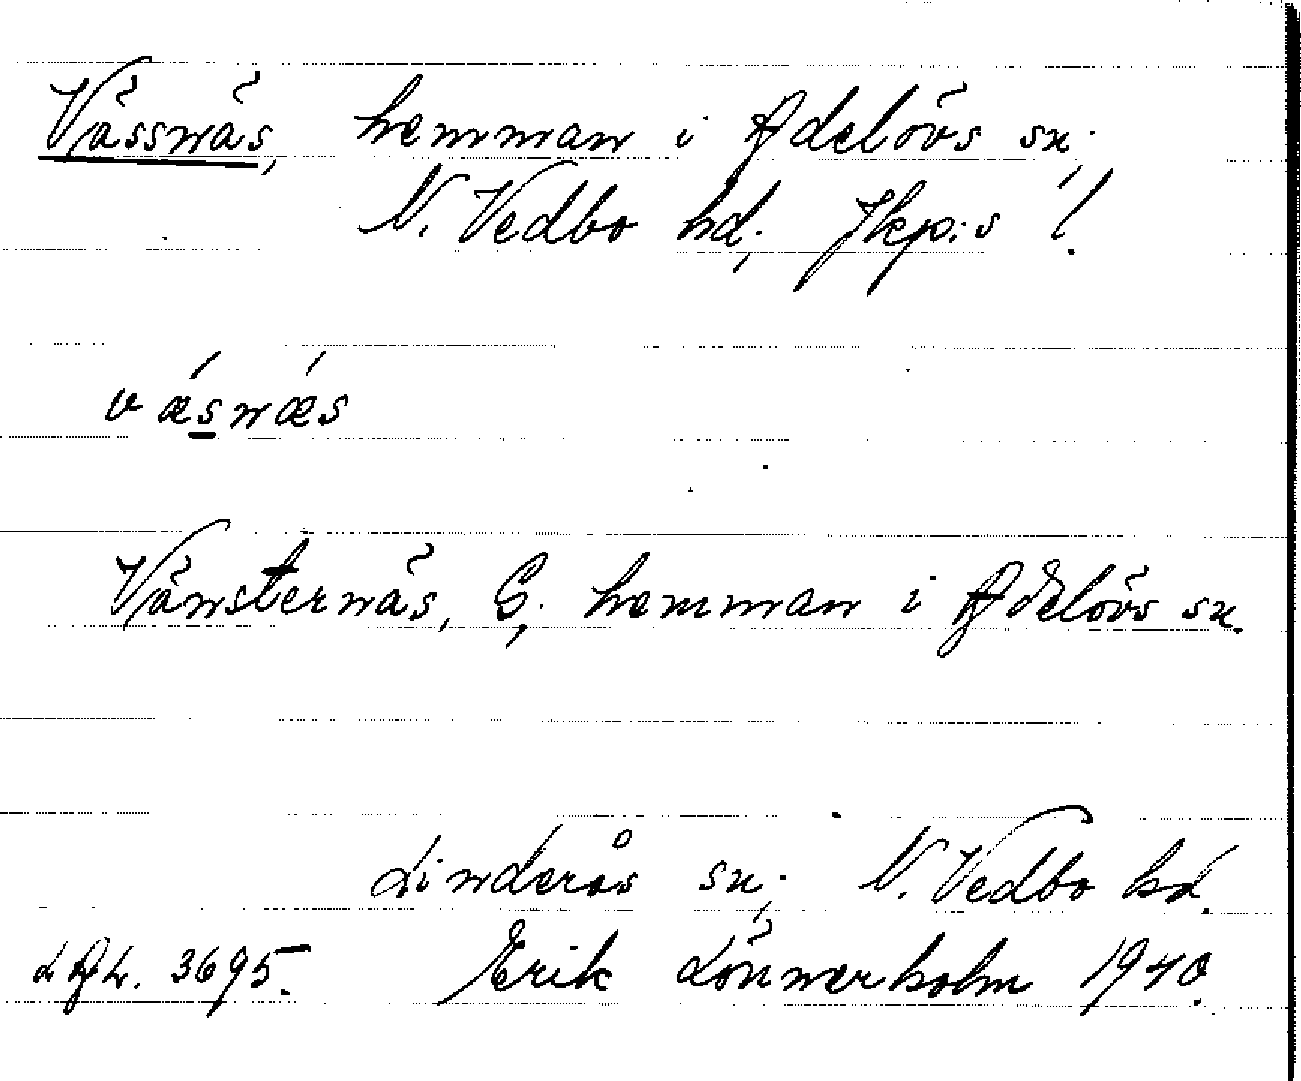 Vässnäs, hemman i Adelövs sn;
N. Vedbo hd; Jkp:s l.
vǽsnæ̀s
Vänsternäs, S; hemman i Adelövs sn.
Linderås sn; N. Vedbo hd.
LAL. 3695. Erik Lönnerholm 1940.